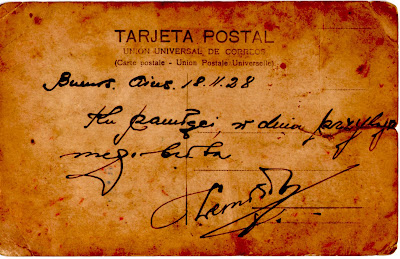 TARJETA POSTAL
UNION UNIVERSAL DE CORREOS
(Carte postale - Union Postale Universelle)
Buenos Aires. 18.11.28
Ku pamięci w dniu
mego brata